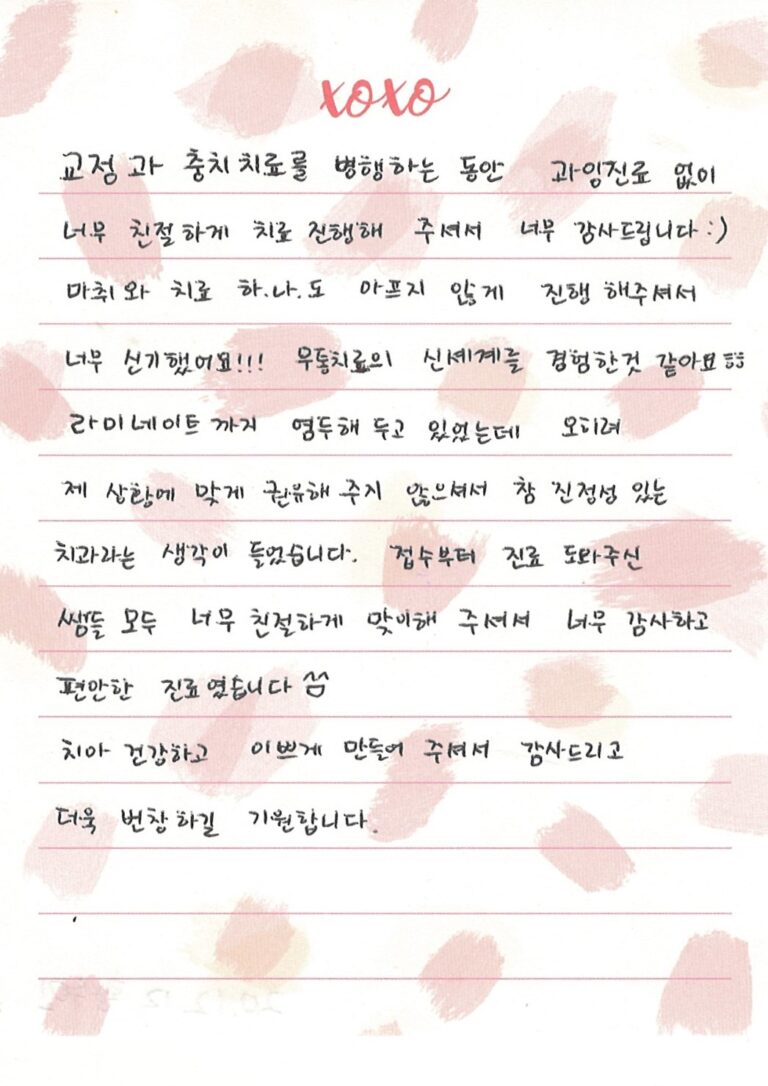 xoxo
교정과 충치치료를 병행하는 동안 과잉진료 없이
너무 친절하게 치료 진행해 주셔서 너무 감사드립니다 :)
마취와 치료 하.나.도 아프지 않게 진행 해주셔서
너무 신기했어요!!! 무통치료의 신세계를 경험한것 같아요ㅎㅎ
라미네이트 까지 염두해 두고 있었는데 오히려
제 상황에 맞게 권유해 주지 않으셔서 참 진정성 있는
치과라는 생각이 들었습니다. 접수부터 진료 도와주신
쌤들 모두 너무 친절하게 맞이해 주셔서 너무 감사하고
편안한 진료였습니다
치아 건강하고 이쁘게 만들어 주셔서 감사드리고
더욱 번창하길 기원합니다.